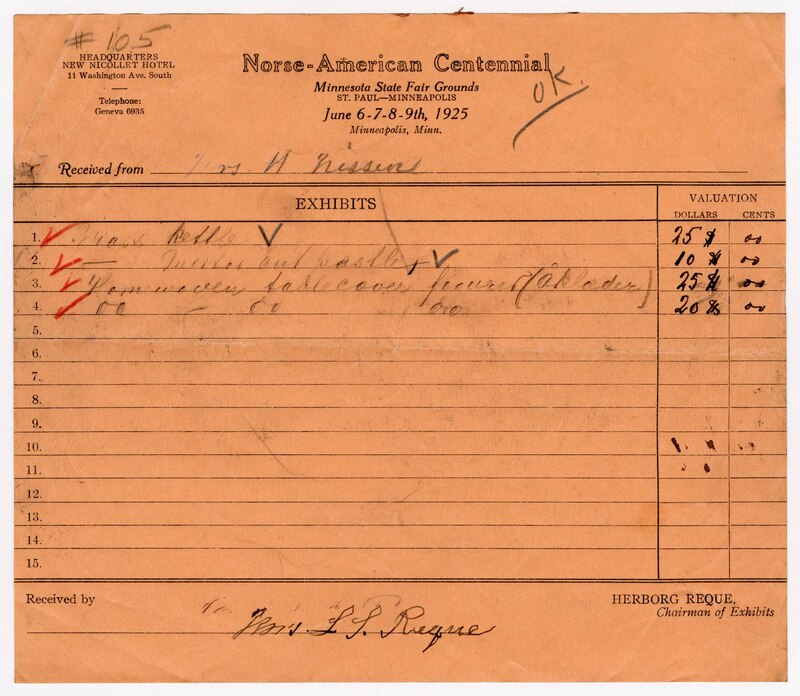 # 105
HEADQUARTERS
NEW NICOLLET HOTEL
11 Washington Ave. South
Telephone:
Geneva 6935
Norse-American Centennial
Minnesota State Fair Grounds
ST. PAUL—MINNEAPOLIS
June 6-7-8-9th, 1925
Minneapolis, Minn.
OK.
Received from Mrs H Nissen
EXHIBITS
VALUATION
DOLLARS CENTS
1. kettle 25 $ 00
2. — 10 $ 00
3. Homewoven tablecover (Åklæder) 25 $ 00
4. oo — oo oo 20 $ 00
5.
6.
7.
8.
9.
10.
11.
12.
13.
14.
15.
Received by
Mrs. L. S. Reque
HERBORG REQUE,
Chairman of Exhibits